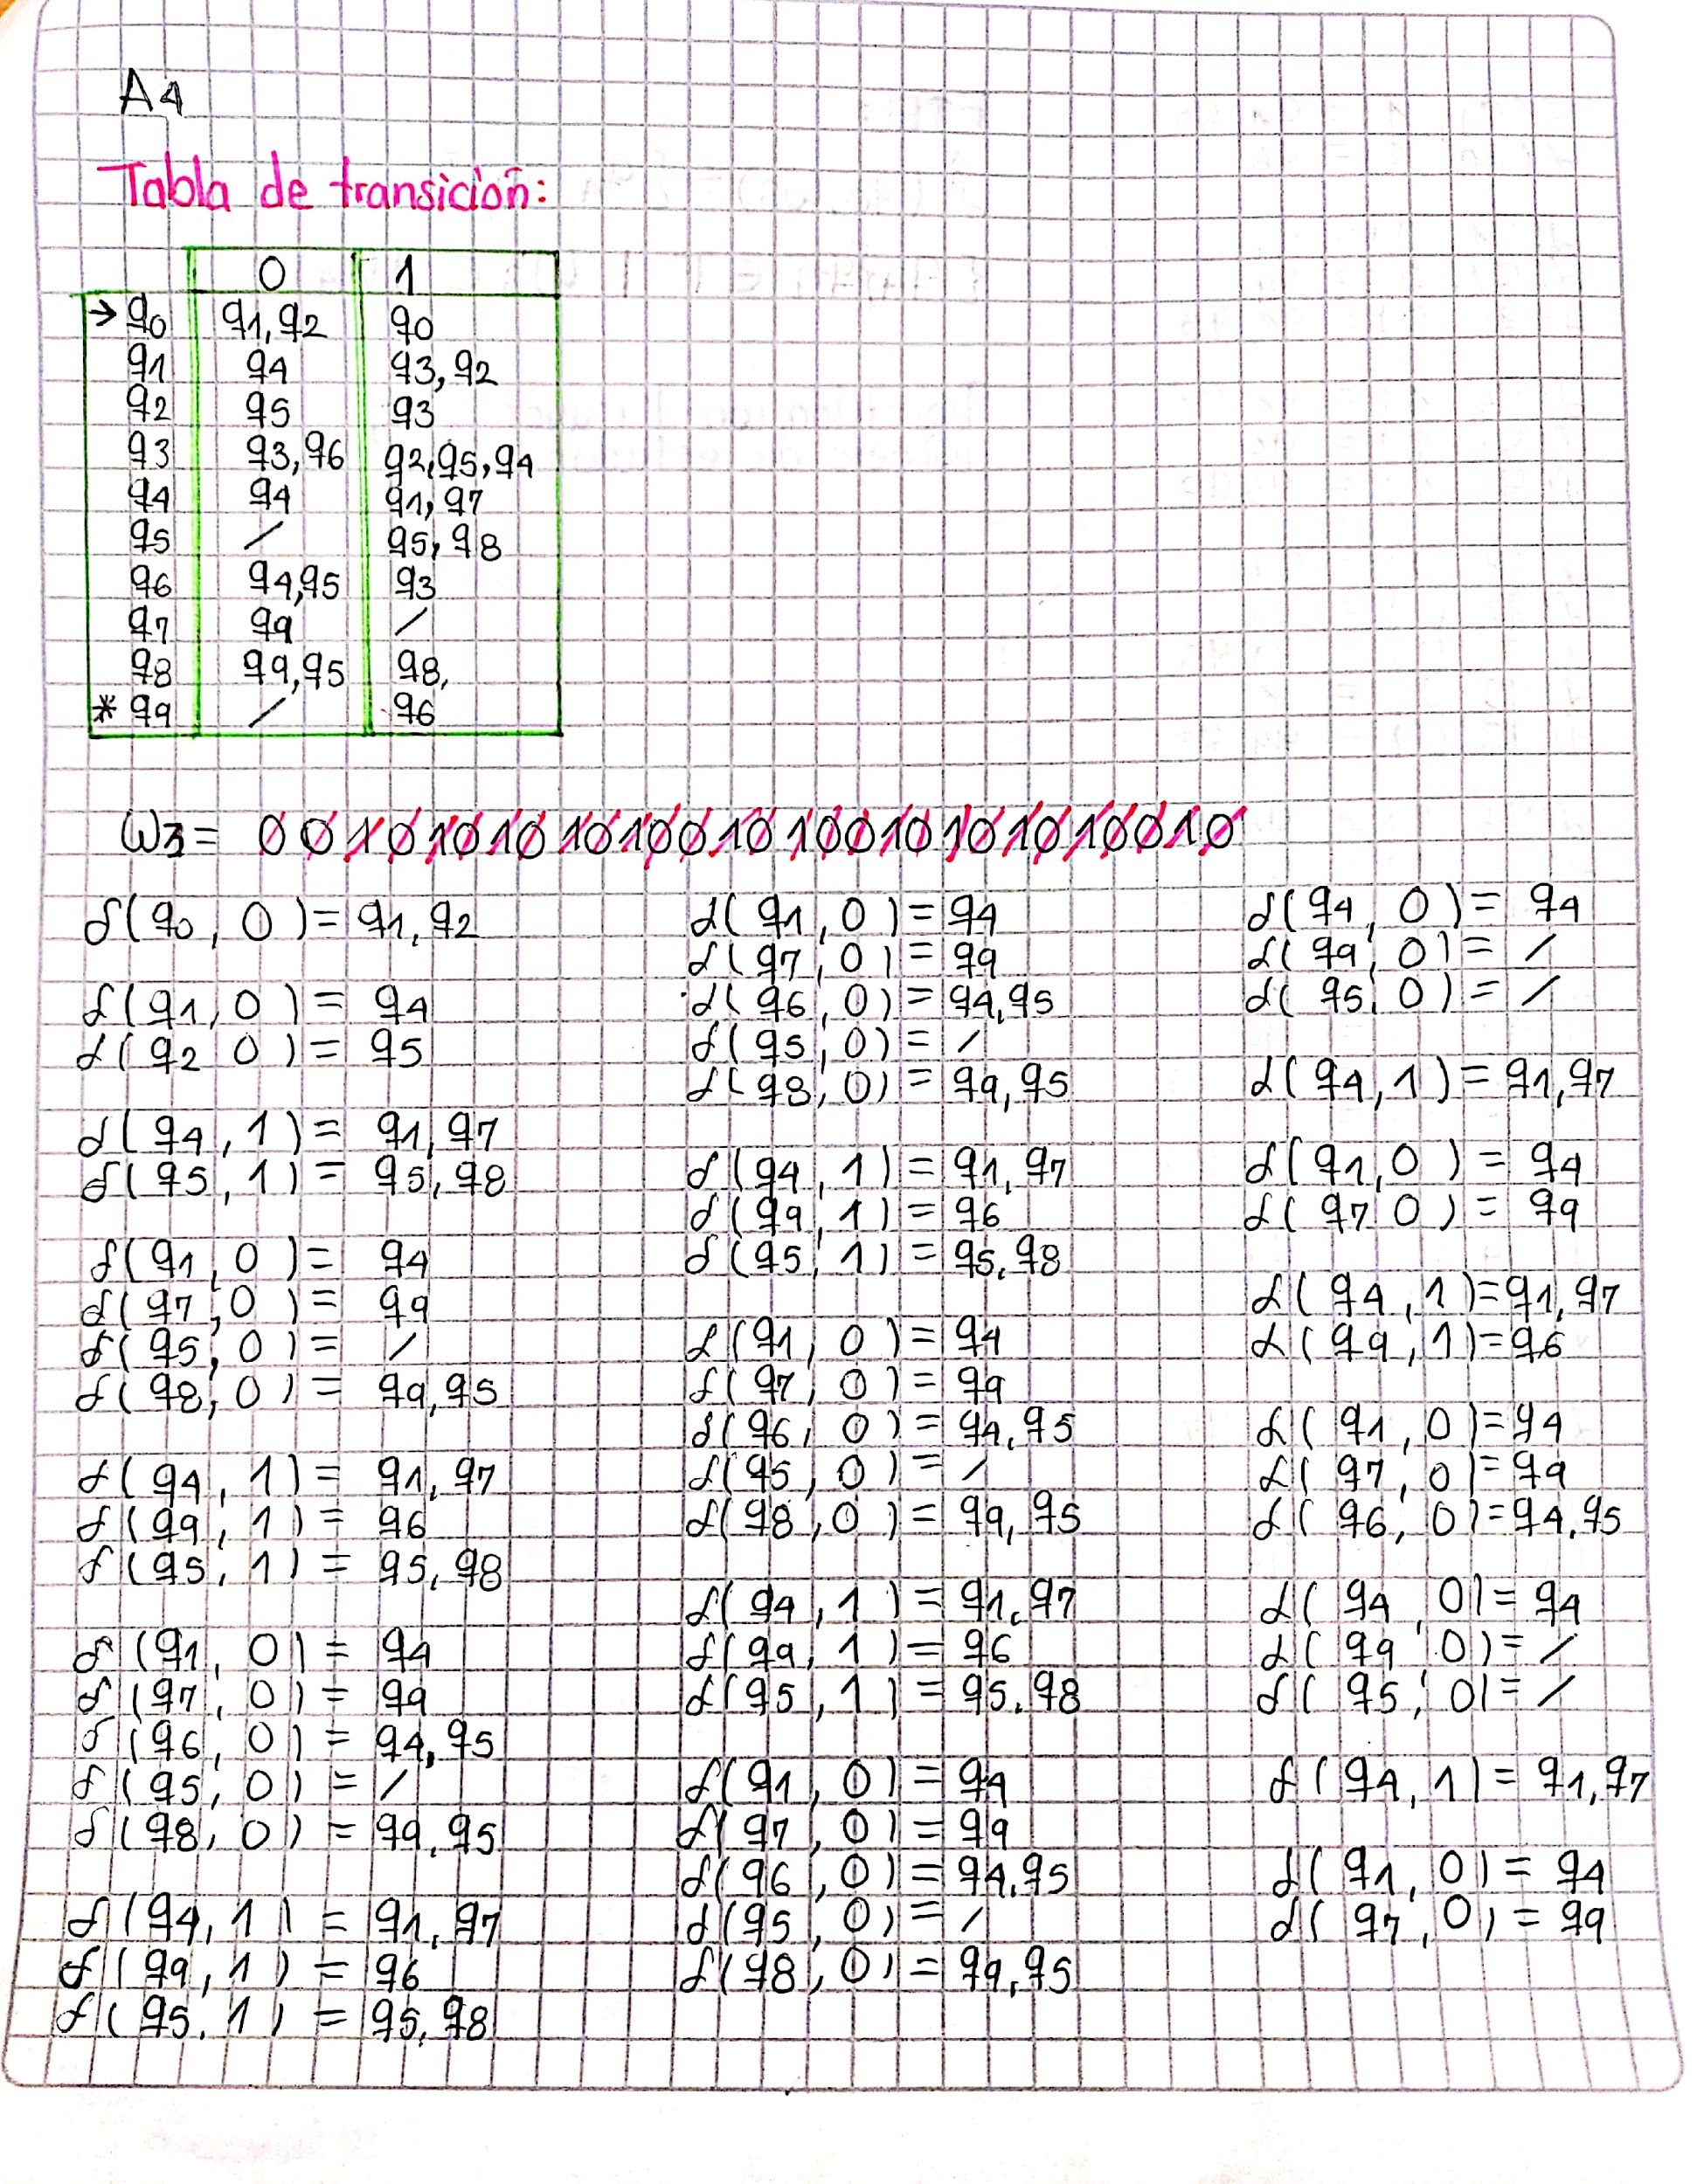 A4
Tabla de transición:
0 1
→ q0 q1,q2 q0
q1 q4 q3,q2
q2 q5 q3
q3 q3,q6 q2,q5,q4
q4 q4 q1,q7
q5 / q5,q8
q6 q4,q5 q3
q7 q9 /
q8 q9,q5 q8,
* q9 / q6
W3 = 0 0 1 0 10 10 10 100 10 100 10 10 10 100 10
δ(q0, 0) = q1,q2
δ(q1, 0) = q4
δ(q2 0) = q5
δ(q4, 1) = q1,q7
δ(q5, 1) = q5,q8
δ(q1, 0) = q4
δ(q7, 0) = q9
δ(q5, 0) = /
δ(q8, 0) = q9,q5
δ(q4, 1) = q1,q7
δ(q9, 1) = q6
δ(q5, 1) = q5,q8
δ(q1, 0) = q4
δ(q7, 0) = q9
δ(q6, 0) = q4,q5
δ(q5, 0) = /
δ(q8, 0) = q9,q5
δ(q4, 1) = q1,q7
δ(q9, 1) = q6
δ(q5, 1) = q5,q8
δ(q1, 0) = q4
δ(q7, 0) = q9
δ(q6, 0) = q4,q5
δ(q5, 0) = /
δ(q8, 0) = q9,q5
δ(q4, 1) = q1,q7
δ(q9, 1) = q6
δ(q5, 1) = q5,q8
δ(q1, 0) = q4
δ(q7, 0) = q9
δ(q6, 0) = q4,q5
δ(q5, 0) = /
δ(q8, 0) = q9,q5
δ(q4, 1) = q1,q7
δ(q9, 1) = q6
δ(q5, 1) = q5,q8
δ(q1, 0) = q4
δ(q7, 0) = q9
δ(q6, 0) = q4,q5
δ(q5, 0) = /
δ(q8, 0) = q9,q5
δ(q4, 0) = q4
δ(q9, 0) = /
δ(q5, 0) = /
δ(q4, 1) = q1,q7
δ(q1, 0) = q4
δ(q7 0) = q9
δ(q4, 1) = q1,q7
δ(q9, 1) = q6
δ(q1, 0) = q4
δ(q7, 0) = q9
δ(q6, 0) = q4,q5
δ(q4, 0) = q4
δ(q9, 0) = /
δ(q5, 0) = /
δ(q4, 1) = q1,q7
δ(q1, 0) = q4
δ(q7, 0) = q9